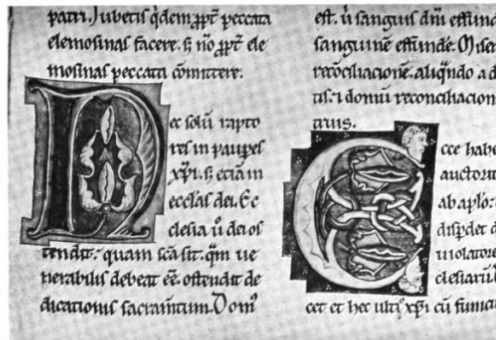 patri. Jubetis q̄dem ꝓpt̄ peccata
elemosinas facere. s; nō ꝓpt̄ ele
mosinas peccata cōmittere.
Nec solū rapto
res in paupes
xp̄i. s; eciā in
ecclās dei. Ec
clesia ū dei os
tendit: quam scā sit. qm̄ ue
nerabilis debeat eē. ostendit de
dicationis sacram̄tum. Dom̄
est. ū sanguis dn̄i effund
sanguinē effunde. Miser
reōciliacione. aliq̄ndo a d
domū reconciliacion
truis.
Ecce habe
auctorit
ab apl̄o:
disp̄det d
uiolatore
clesiarū
cet et hec ulti xp̄i cū funic